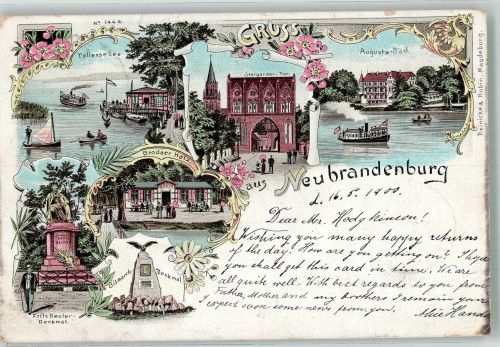 No 1444
GRUSS
Tollensesee
Stargarder-Tor
Augusta-Bad
Reinicke & Rubin, Magdeburg.
Brodaer Holz
aus Neubrandenburg
Fritz Reuter-
Denkmal.
Bismarck Denkmal
d. 16.5.1900.
Dear Mr. Hodgkinson!
Wishing you many happy returns
of the day. How are you getting on? I hope
you shall get this card in time. We are
all quite well. With best regards to you from
Father, Mother and my brothers I remain yours
I expect soon some news from you.